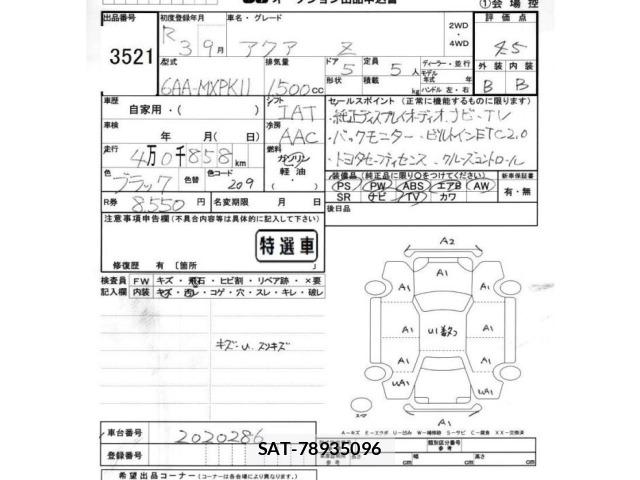 オークション出品申込書
①会場控
出品番号 初度登録年月 車名・グレード 2WD・4WD 評価点
3521 R3 9月 アクア Z 4.5
型式 排気量 ドア 5 定員 5人 ディーラー・並行 外装 内装
6AA-MXPK11 1,500cc 形状 積載 kg モデル年式 年 ハンドル 左・右 B B
車歴 自家用・( ) シフト IAT セールスポイント (正常に機能するものに限ります)
・純正ディスプレイオーディオ、ナビ・TV
車検 年 月(日) 冷房 AAC
・バックモニター・ビルトインETC2.0
走行 4万0千858km 燃料 ガソリン・軽油・
・トヨタセーフティセンス、クルーズコントロール
色 ブラック 色替 色コード 209
装備品 (純正品に限り〇をつけてください) 新車保証書
PS PW ABS エアB AW 有・無
R券 8,550円 名義変更期限 月 日
SR ナビ TV カワ
後日品
注意事項申告欄(不具合内容等は具体的に記入して下さい)
特選車
修復歴 有 〔箇所 〕
検査員記入欄 FW キズ・飛石・ヒビ割・リペア跡・×要
内装 キズ・汚レ・コゲ・穴・スレ・キレ・破レ
キズ・U、スリキズ
A2
A1
A1 A1
A1 U1数つ A1
A1 A1
UA1 A1 UA1
スペア
A1
A-キズ E-エクボ U-凹み W-補修跡 S-サビ C-腐食 XX-交換済
車台番号 2020286
登録番号
類別区分番号
車庫証明 長さ cm 幅 cm 高さ cm
SAT-78935096
希望出品コーナー (コーナーは各会場により異なります。)